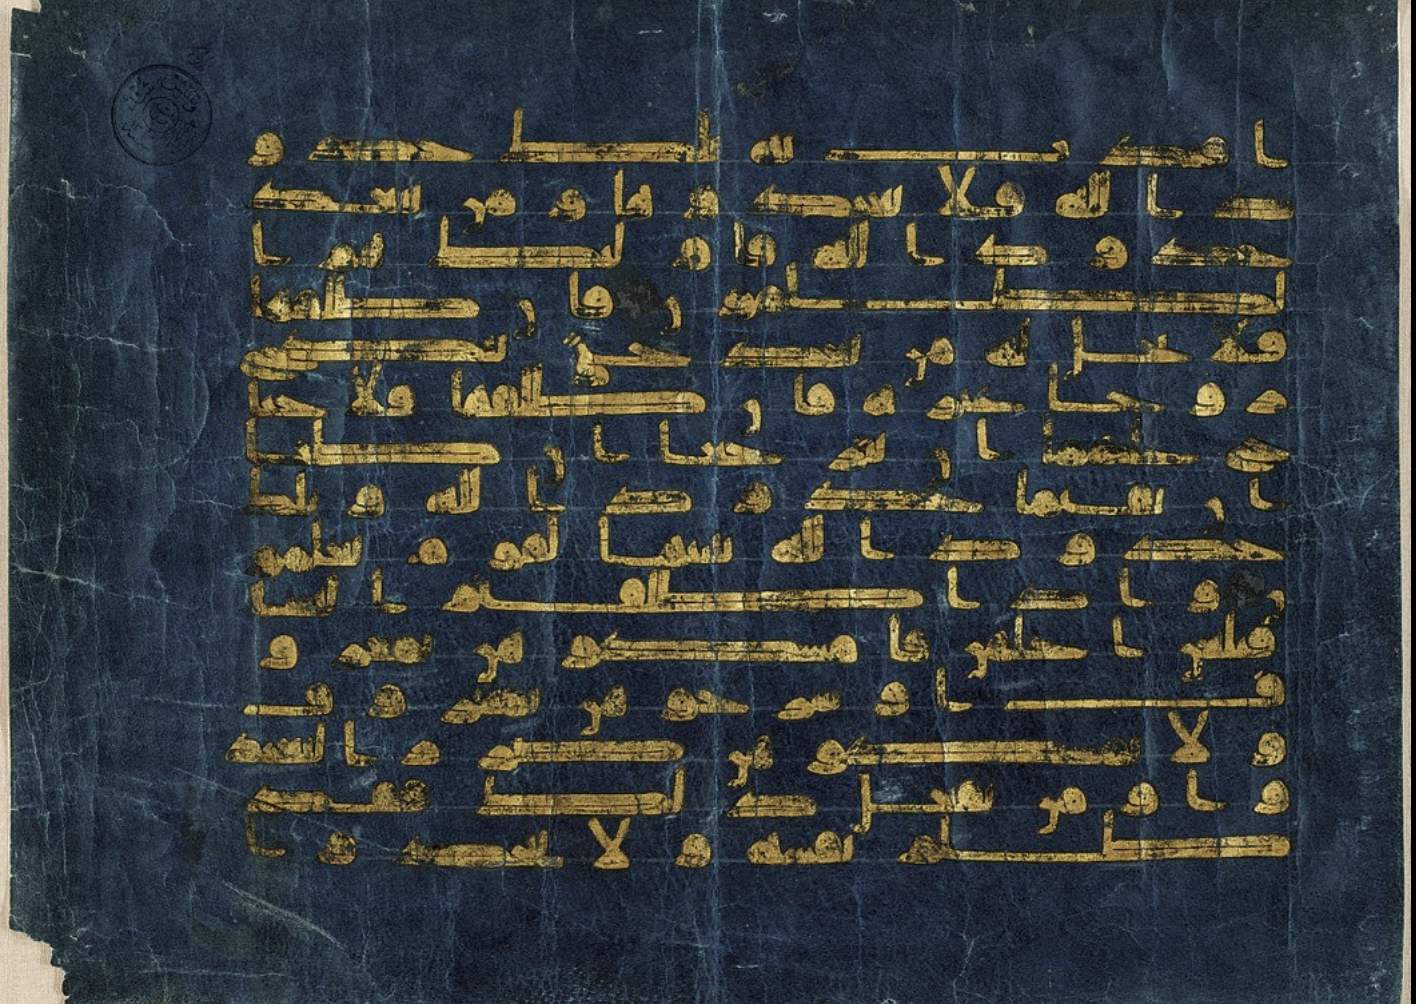 ا افتدت به تلك حدو
د الله فلا تعتدوها ومن يتعد
حدود الله فاولئك هم ا
لظلمون فان طلقها
فلا تحل له من بعد حتى تنكح
زوجا غيره فان طلقها فلا جنا
ح عليهما ان يتراجعا ان ظنا
ان يقيما حدود الله وتلك
حدود الله يبينها لقوم يعلمو
ن واذا طلقتم النسا
فبلغن اجلهن فامسكوهن بمعرو
ف او سرحوهن بمعروف
ولا تمسكوهن ضرارا لتعتد
وا ومن يفعل ذلك فقد
ظلم نفسه ولا تتخذوا